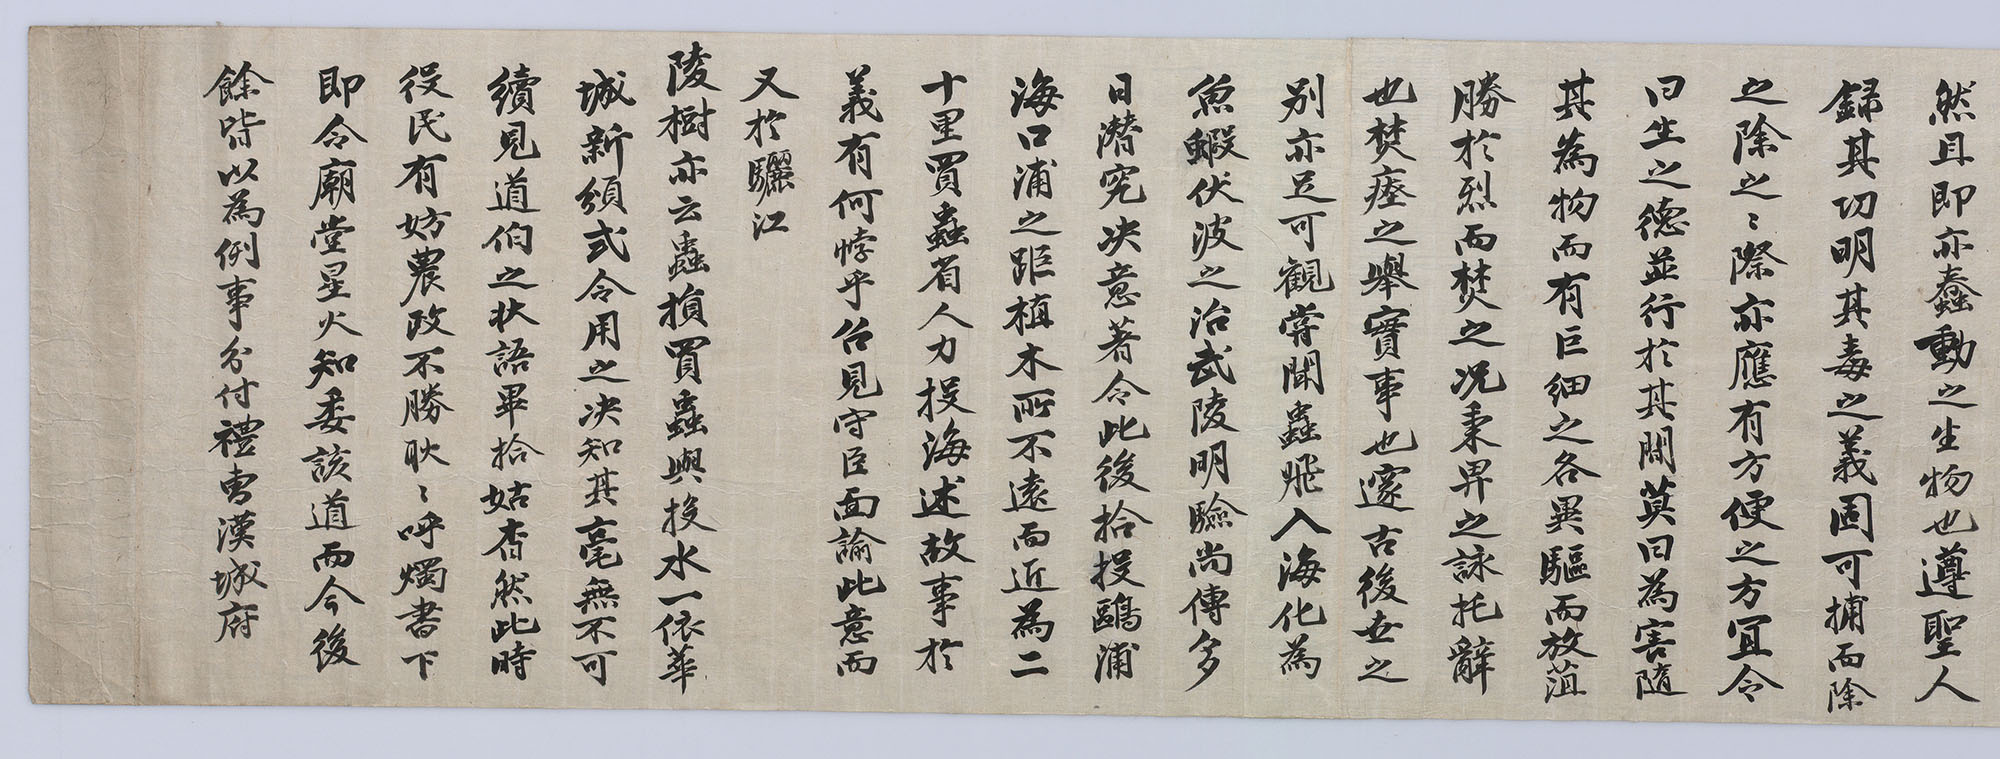 然且即亦蠢動之生物也遵聖人
錄其切明其毒之義固可捕而除
之除之〻際亦應有方便之方宜令
曰生之之德並行於其間莫曰為害隨
其為物而有巨細之各異驅而放菹
勝於烈而焚之况秉畀之詠托辭
也焚瘞之舉實事也邃古後世之
別亦足可觀嘗聞蟲飛入海化為
魚蝦伏波之治武陵明驗尚傳多
日潛究决意著令此後拾投鷗浦
海口浦之距植木所不遠而近為二
十里買蟲省人力投海述故事於
義有何悖乎台見守臣面諭此意而
又於驪江
陵樹亦云蟲損買蟲與投水一依華
城新頒式令用之决知其毫無不可
續見道伯之狀語畢拾姑杳然此時
役民有妨農政不勝耿〻呼燭書下
即令廟堂星火知委該道而今後
餘皆以為例事分付禮曹漢城府